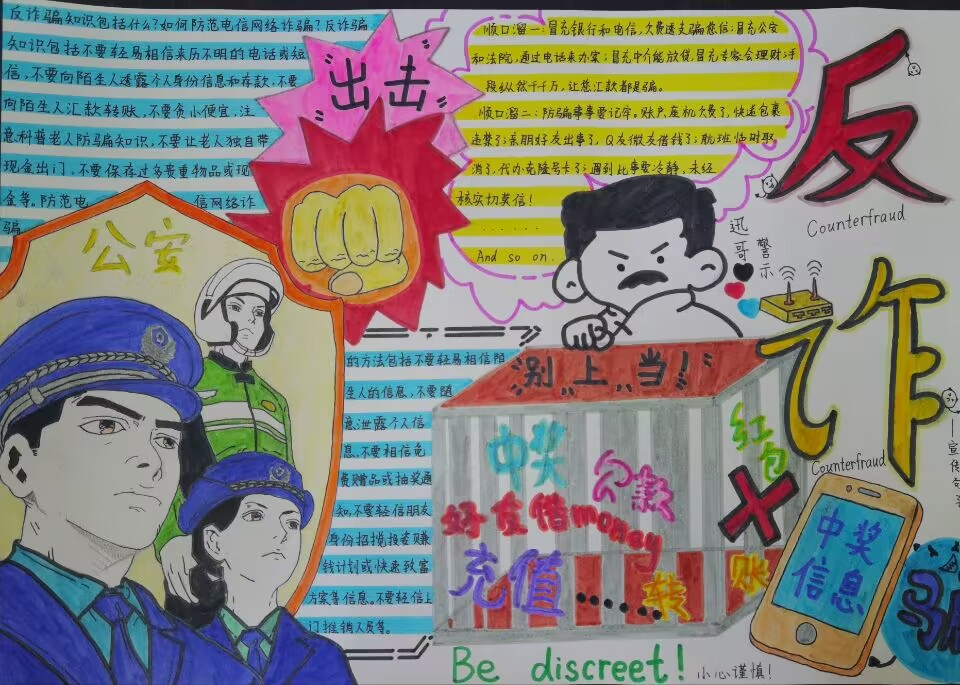 反诈骗知识包括什么?如何防范电信网络诈骗?反诈骗
知识包括不要轻易相信来历不明的电话或短
信,不要向陌生人透露个人身份信息和存款,不要
向陌生人汇款转账,不要贪小便宜,注
意科普老人防骗知识,不要让老人独自带
现金出门,不要保存过多贵重物品或现
金等。防范电 信网络诈
骗
出击
顺口溜一:冒充银行和电信,欠费透支骗您信;冒充公安
和法院,通过电话来办案;冒充中介能放贷,冒充专家会理财;手
段纵然千千万,让您汇款都是骗。
顺口溜二:防骗事事要记牢,账户座机欠费了,快递包裹
违禁了;亲朋好友出事了,Q友微友借钱了;航班临时取
消了,代办克隆号卡了;遇到此事要冷静,未经
核实切莫信!
.......
And so on.
反
Counterfraud
迅哥
警示
公安
的方法包括不要轻易相信陌
生人的信息,不要随
意泄露个人信
息,不要相信免
费赠品或抽奖通
知,不要轻信朋友
身份招揽投资赚
钱计划或快速致富
方案等信息。不要轻信上
门推销人员等。
别上当!
中奖
公款
红包
好友借money
充值
......
转账
诈
Counterfraud
中奖
信息
Be discreet!
小心谨慎!